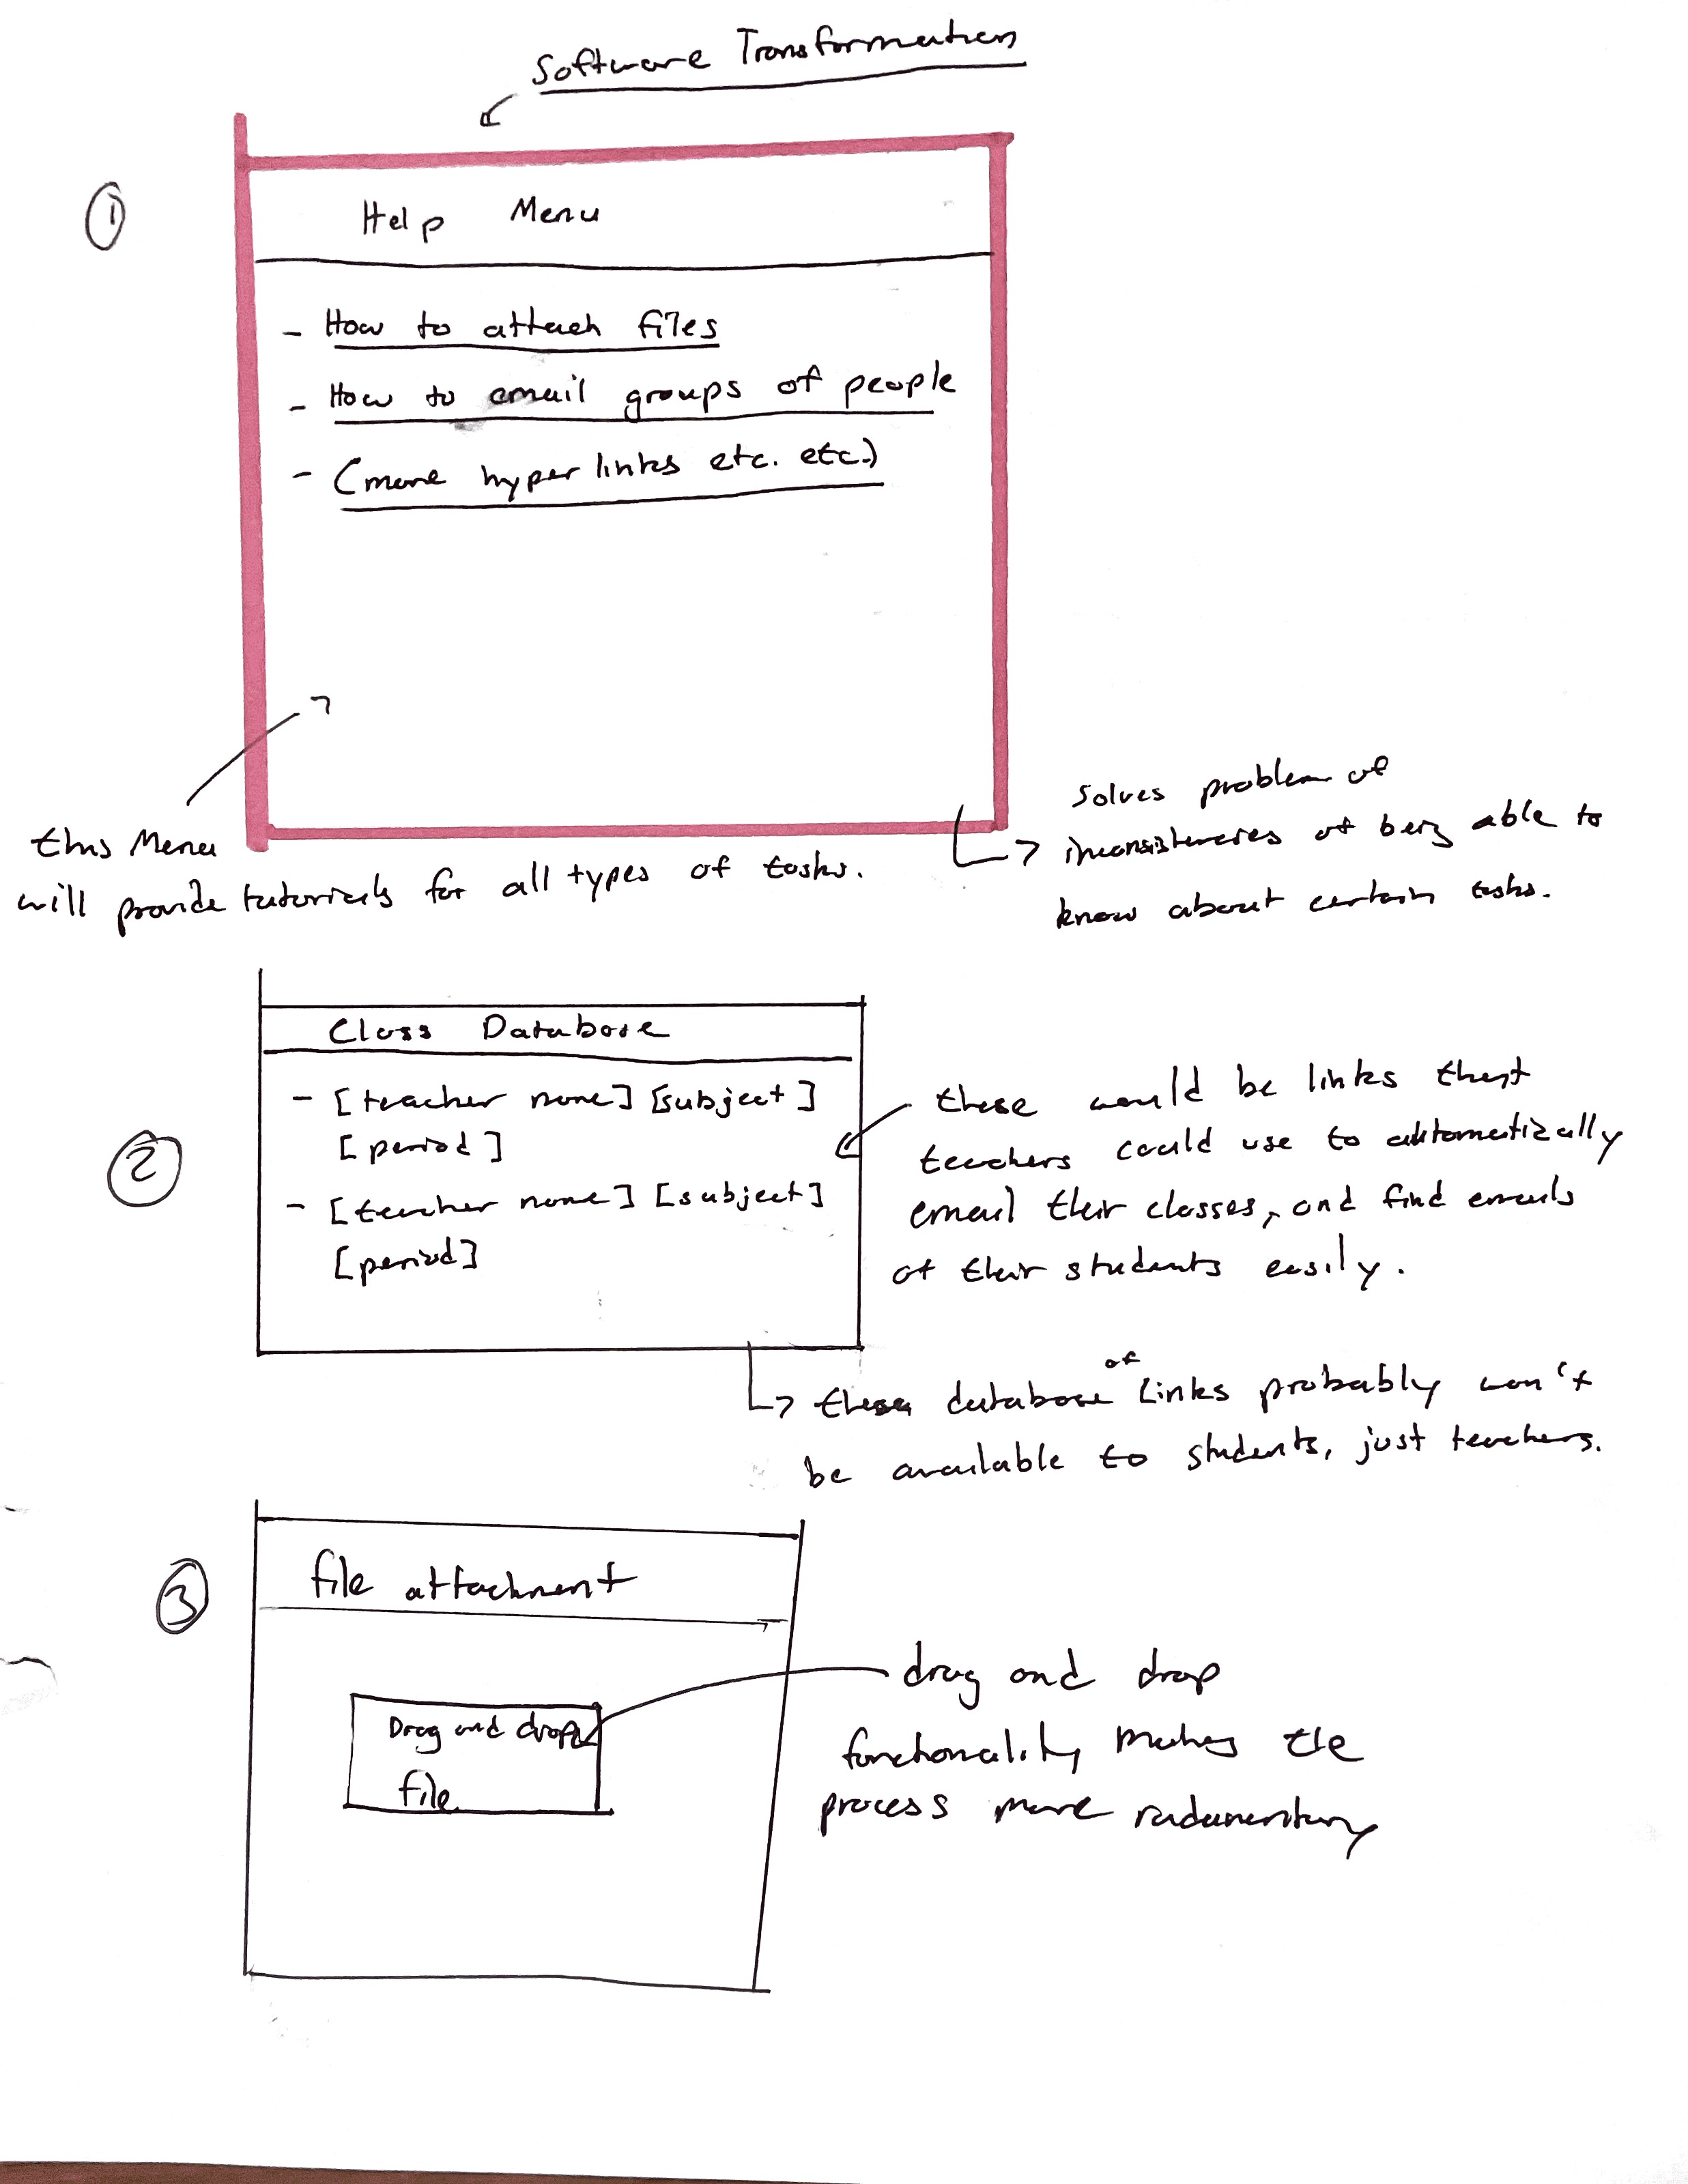 Software Transformation
①
Help Menu
- How to attach files
- How to email groups of people
- (more hyperlinks etc. etc.)
this Menu
will provide tutorials for all types of tasks.
solves problem of
inconsistencies of being able to
know about certain tasks.
②
Class Database
- [teacher name] [subject]
[period]
- [teacher name] [subject]
[period]
these would be links that
teachers could use to automatically
email their classes, and find emails
of their students easily.
these database of links probably won't
be available to students, just teachers.
③
file attachment
Drag and drop
file
drag and drop
functionality makes the
process more rudamentary